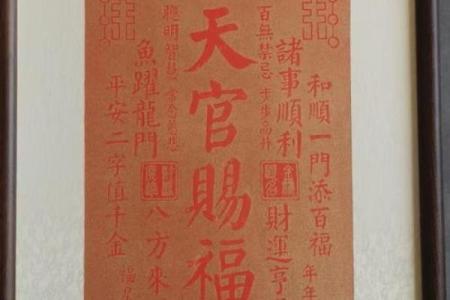 和順一門添百福
年年
諸事順利
財運亨
百無禁忌 步步高升
天官賜福
聰明智慧
魚躍龍門
八方來
平安二字值千金
福